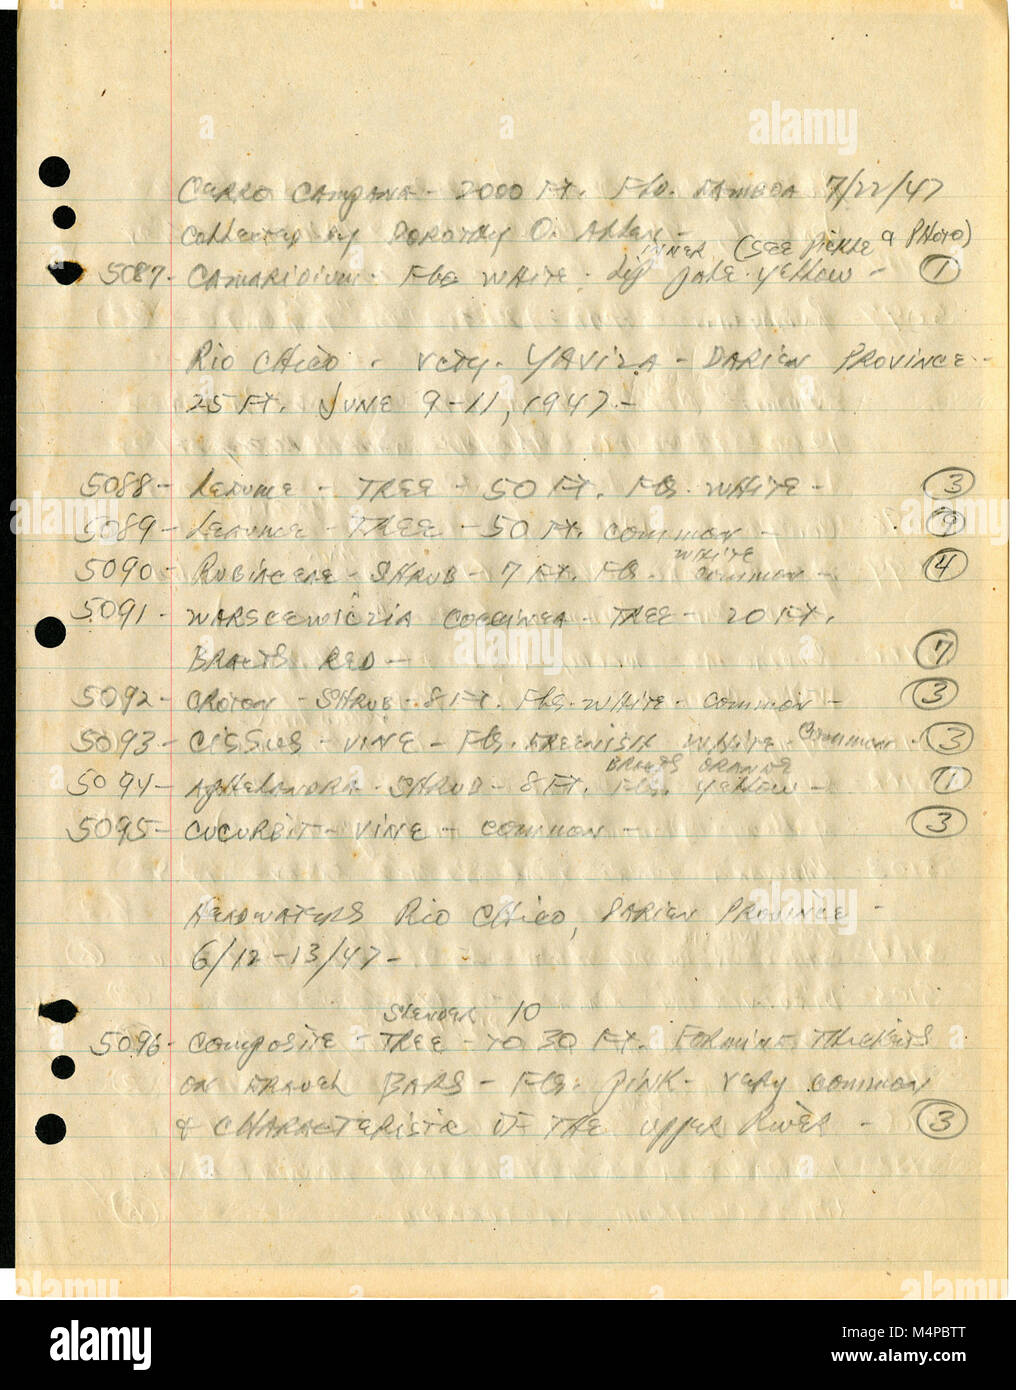 Cerro Campana - 2000 Ft. Flo. Gamboa 7/22/47
Collected by Dorothy O. Allen -
INNER (SEE Pickle & PHOTO)
5087 - CAMARIDIUM - Fls WHITE - lip pale yellow - 1
Rio CHICO - VCTY. YAVIZA - DARIEN PROVINCE -
25 FT. JUNE 9-11, 1947 -
5088 - Legume - TREE - 50 FT. Fls. WHITE - 3
5089 - Legume - TREE - 50 FT. common - 9
WHITE
5090 - RUBIACEAE - SHRUB - 7 FT. Fls. common - 4
5091 - WARSCEWICZIA COCCINEA - TREE - 20 FT.
BRACTS RED - 7
5092 - CROTON - SHRUB - 8 FT. Fls. WHITE - common - 3
5093 - CISSUS - VINE - Fls. GREENISH WHITE - Common - 3
BRACTS ORANGE
5094 - APHELANDRA - SHRUB - 8 FT. Fls. yellow - 1
5095 - CUCURBIT - VINE - common - 3
HEADWATERS Rio CHICO, DARIEN PROVINCE -
6/12-13/47 -
Slender 10
5096 - Composite - TREE - TO 30 FT. FORMING THICKETS
ON GRAVEL BARS - Fls. PINK - very common
& CHARACTERISTIC OF THE upper River - 3
alamy
Image ID: M4PBTT
www.alamy.com